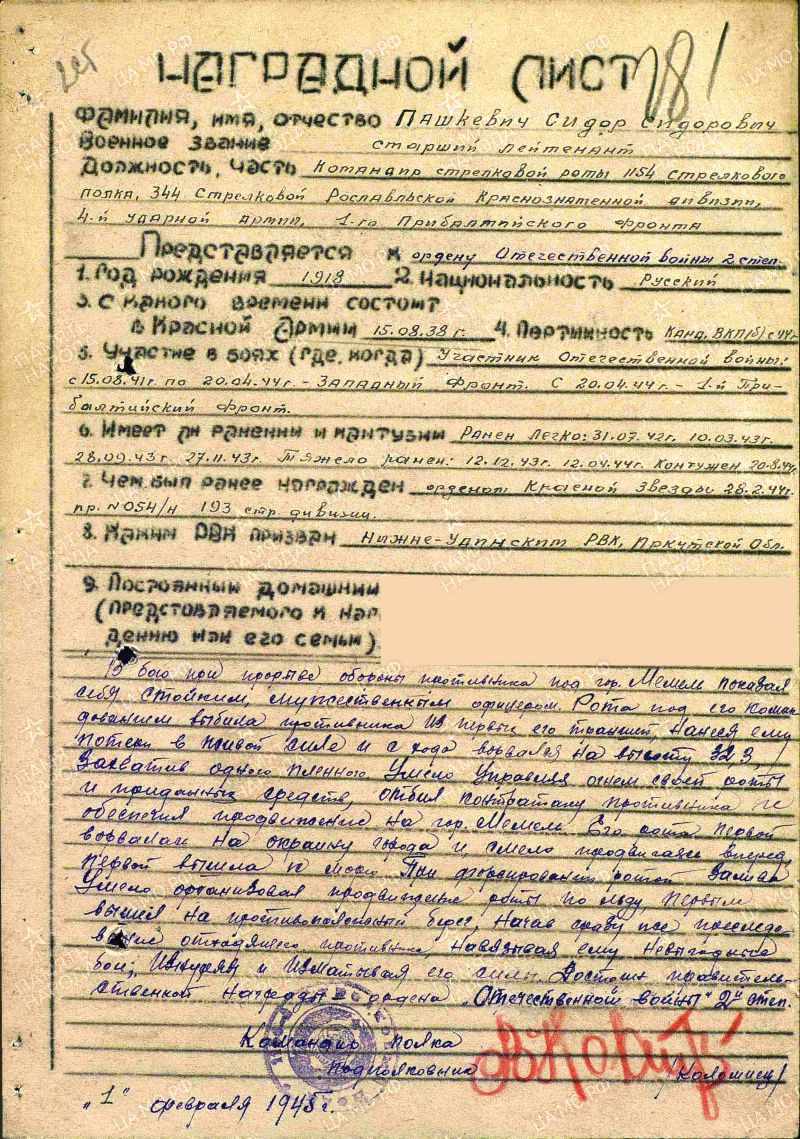 НАГРАДНОЙ ЛИСТ
181
Фамилия, имя, отчество Пашкевич Сидор Сидорович
Военное звание старший лейтенант
Должность, часть Командир стрелковой роты 1154 стрелкового
полка, 344 Стрелковой Рославльской Краснознаменной дивизии,
4-й ударной армии, 1-го Прибалтийского Фронта
Представляется к ордену Отечественной войны 2 степ.
1. Год рождения 1918 2. Национальность Русский
3. С какого времени состоит
в Красной Армии 15.08.38 г. 4. Партийность Канд. ВКП(б) с 44г
5. Участие в боях (где, когда) Участник Отечественной войны:
с 15.08.41г. по 20.04.44г. - Западный Фронт. С 20.04.44г. - 1-й При-
балтийский Фронт.
6. Имеет ли ранения и контузии Ранен легко: 31.07.42г. 10.03.43г.
28.09.43г. 27.11.43г. Тяжело ранен: 12.12.43г. 12.04.44г. Контужен 20.8.44г
7. Чем был ранее награжден орденом Красной Звезды 28.2.44г.
пр. N 054/н 193 стр. дивизии.
8. Каким РВК призван Нижне-Удинским РВК, Иркутской Обл.
9. Постоянный домашний
(представляемого к наг
дению или его семьи)
В бою при прорыве обороны противника под гор. Мемель показал
себя стойким, мужественным офицером. Рота под его коман
дованием выбила противника из первых его траншей, нанеся ему
потери в живой силе и с хода ворвался на высоту 32,3,
захватив одного пленного. Умело управляя огнем своей роты
и приданных средств, отбил контратаку противника и
обеспечил продвижение на гор. Мемель. Его рота первой
ворвалась на окраину города и, смело продвигаясь вперед,
первой вышла к морю. При форсировании ротой залива
умело организовал продвижение роты по льду. Первым
вышел на противоположный берег, начав сразу же преследо
вание отходящего противника, навязывая ему невыгодные
бои, изнуряя и изматывая его силы. Достоин правитель-
ственной награды - ордена „Отечественной войны" 2й степ.
Командир полка
Подполковник /Коломиец/
„1" февраля 1945 г.